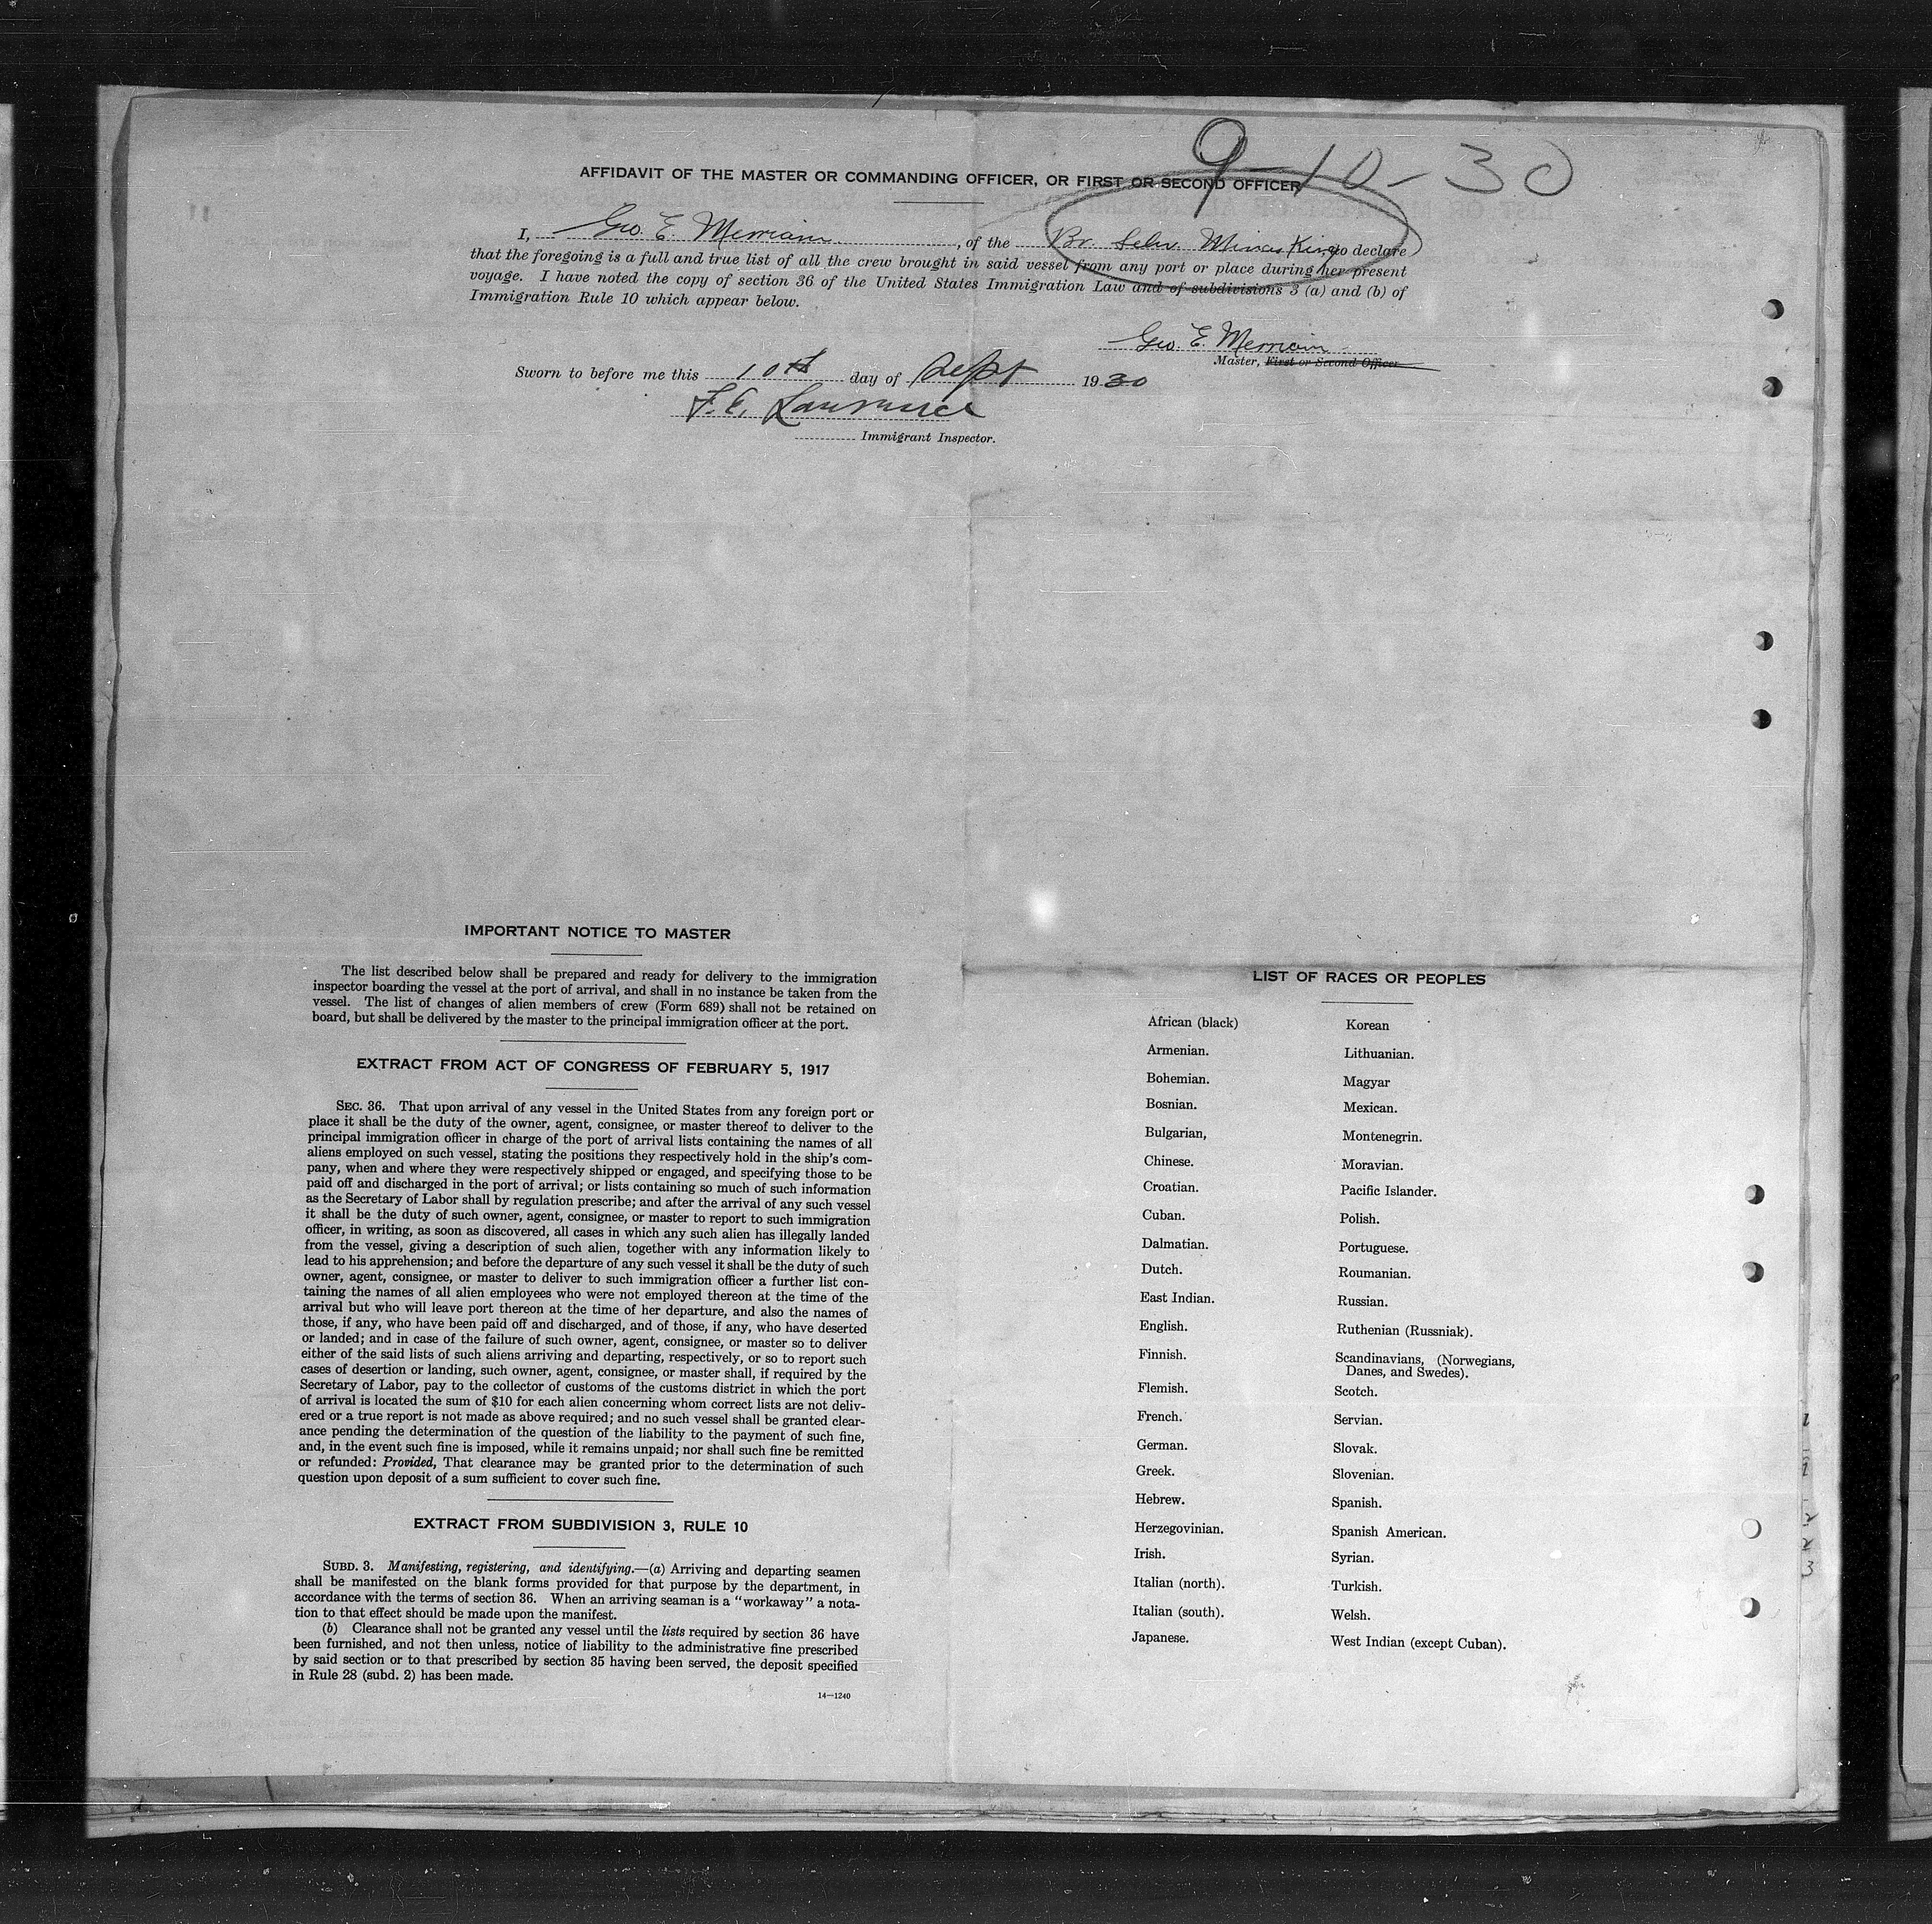 9-10-30
AFFIDAVIT OF THE MASTER OR COMMANDING OFFICER, OR FIRST OR SECOND OFFICER
I, Geo. E. Merriam, of the Br. Schr. Minas King, do declare
that the foregoing is a full and true list of all the crew brought in said vessel from any port or place during her present
voyage. I have noted the copy of section 36 of the United States Immigration Law and of subdivisions 3 (a) and (b) of
Immigration Rule 10 which appear below.
Geo. E. Merriam
Master, First or Second Officer
Sworn to before me this 10th day of Sept 1930
F. E. Lawrence
Immigrant Inspector.
IMPORTANT NOTICE TO MASTER
The list described below shall be prepared and ready for delivery to the immigration
inspector boarding the vessel at the port of arrival, and shall in no instance be taken from the
vessel. The list of changes of alien members of crew (Form 689) shall not be retained on
board, but shall be delivered by the master to the principal immigration officer at the port.
EXTRACT FROM ACT OF CONGRESS OF FEBRUARY 5, 1917
SEC. 36. That upon arrival of any vessel in the United States from any foreign port or
place it shall be the duty of the owner, agent, consignee, or master thereof to deliver to the
principal immigration officer in charge of the port of arrival lists containing the names of all
aliens employed on such vessel, stating the positions they respectively hold in the ship's com-
pany, when and where they were respectively shipped or engaged, and specifying those to be
paid off and discharged in the port of arrival; or lists containing so much of such information
as the Secretary of Labor shall by regulation prescribe; and after the arrival of any such vessel
it shall be the duty of such owner, agent, consignee, or master to report to such immigration
officer, in writing, as soon as discovered, all cases in which any such alien has illegally landed
from the vessel, giving a description of such alien, together with any information likely to
lead to his apprehension; and before the departure of any such vessel it shall be the duty of such
owner, agent, consignee, or master to deliver to such immigration officer a further list con-
taining the names of all alien employees who were not employed thereon at the time of the
arrival but who will leave port thereon at the time of her departure, and also the names of
those, if any, who have been paid off and discharged, and of those, if any, who have deserted
or landed; and in case of the failure of such owner, agent, consignee, or master so to deliver
either of the said lists of such aliens arriving and departing, respectively, or so to report such
cases of desertion or landing, such owner, agent, consignee, or master shall, if required by the
Secretary of Labor, pay to the collector of customs of the customs district in which the port
of arrival is located the sum of $10 for each alien concerning whom correct lists are not deliv-
ered or a true report is not made as above required; and no such vessel shall be granted clear-
ance pending the determination of the question of the liability to the payment of such fine,
and, in the event such fine is imposed, while it remains unpaid; nor shall such fine be remitted
or refunded: Provided, That clearance may be granted prior to the determination of such
question upon deposit of a sum sufficient to cover such fine.
EXTRACT FROM SUBDIVISION 3, RULE 10
SUBD. 3. Manifesting, registering, and identifying.—(a) Arriving and departing seamen
shall be manifested on the blank forms provided for that purpose by the department, in
accordance with the terms of section 36. When an arriving seaman is a "workaway" a nota-
tion to that effect should be made upon the manifest.
(b) Clearance shall not be granted any vessel until the lists required by section 36 have
been furnished, and not then unless, notice of liability to the administrative fine prescribed
by said section or to that prescribed by section 35 having been served, the deposit specified
in Rule 28 (subd. 2) has been made.
14—1240
LIST OF RACES OR PEOPLES
African (black)
Armenian.
Bohemian.
Bosnian.
Bulgarian,
Chinese.
Croatian.
Cuban.
Dalmatian.
Dutch.
East Indian.
English.
Finnish.
Flemish.
French.
German.
Greek.
Hebrew.
Herzegovinian.
Irish.
Italian (north).
Italian (south).
Japanese.
Korean
Lithuanian.
Magyar
Mexican.
Montenegrin.
Moravian.
Pacific Islander.
Polish.
Portuguese.
Roumanian.
Russian.
Ruthenian (Russniak).
Scandinavians, (Norwegians,
Danes, and Swedes).
Scotch.
Servian.
Slovak.
Slovenian.
Spanish.
Spanish American.
Syrian.
Turkish.
Welsh.
West Indian (except Cuban).